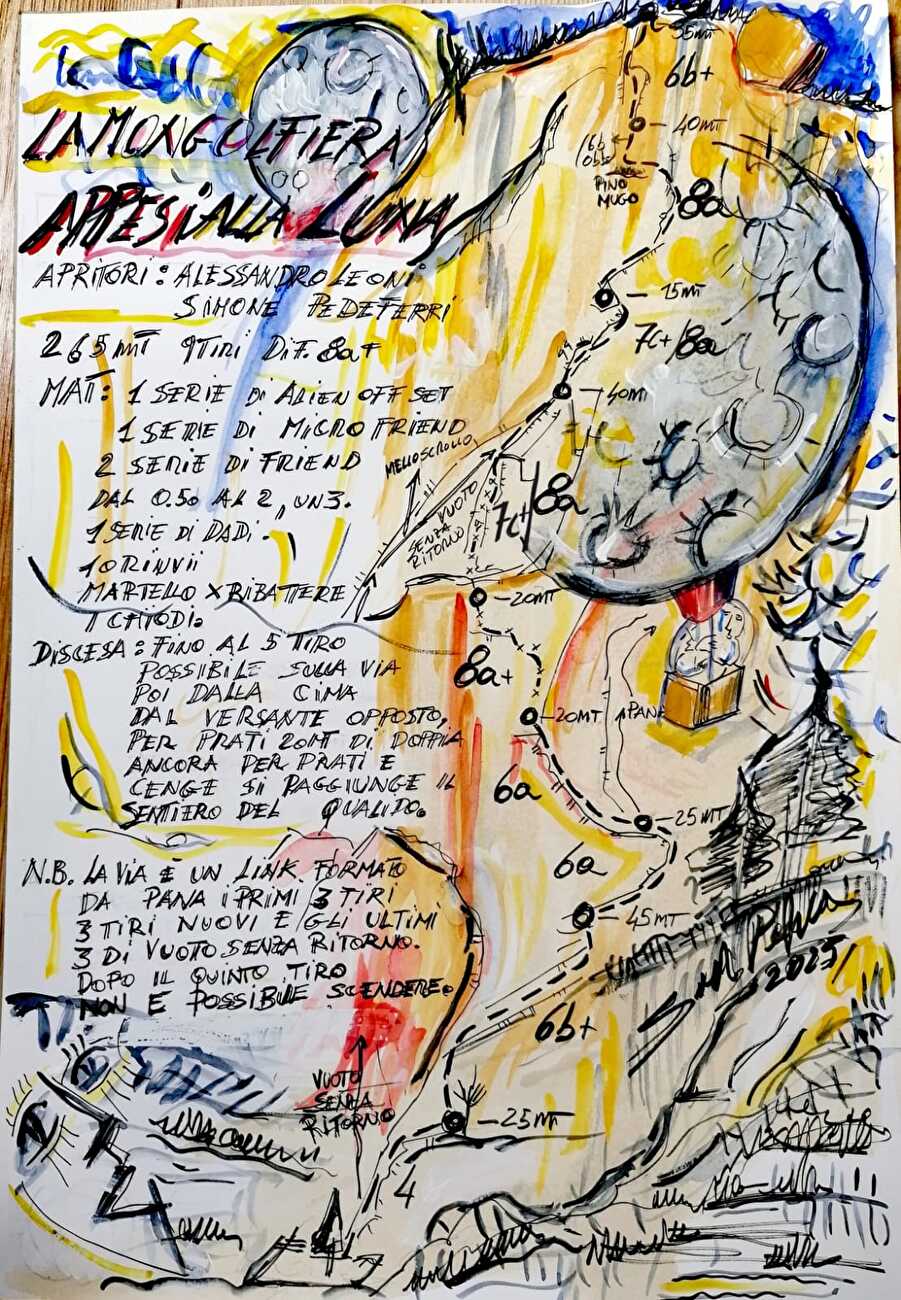 LA MONGOLFIERA
APPESI ALLA LUNA
APRITORI: ALESSANDRO LEONI
SIMONE PEDEFERRI
265mt 9TIRI DIF. 8a+
MAT: 1 SERIE DI ALIEN OFF SET
1 SERIE DI MICRO FRIEND
2 SERIE DI FRIEND
DAL 0.50 AL 2, UN 3.
1 SERIE DI DADI.
10 RINVII
MARTELLO X RIBATTERE
I CHIODI.
DISCESA: FINO AL 5 TIRO
POSSIBILE SULLA VIA
POI DALLA CIMA
DAL VERSANTE OPPOSTO,
PER PRATI 20MT DI DOPPIA
ANCORA PER PRATI E
CENGE SI RAGGIUNGE IL
SENTIERO DEL QUALIDO.
N.B. LA VIA È UN LINK FORMATO
DA PANA I PRIMI 3 TIRI
3 TIRI NUOVI E GLI ULTIMI
3 DI VUOTO SENZA RITORNO.
DOPO IL QUINTO TIRO
NON È POSSIBILE SCENDERE.
35mt
6b+
40MT
PINO
MUGO
8a
15MT
7c+/8a
40MT
MELLOSCROLLO
VUOTO
SENZA
RITORNO
7c+/8a
20MT
8a+
20MT
PANA
6a
25MT
6a
45MT
2025
6b+
VUOTO
SENZA
RITORNO
25MT
4